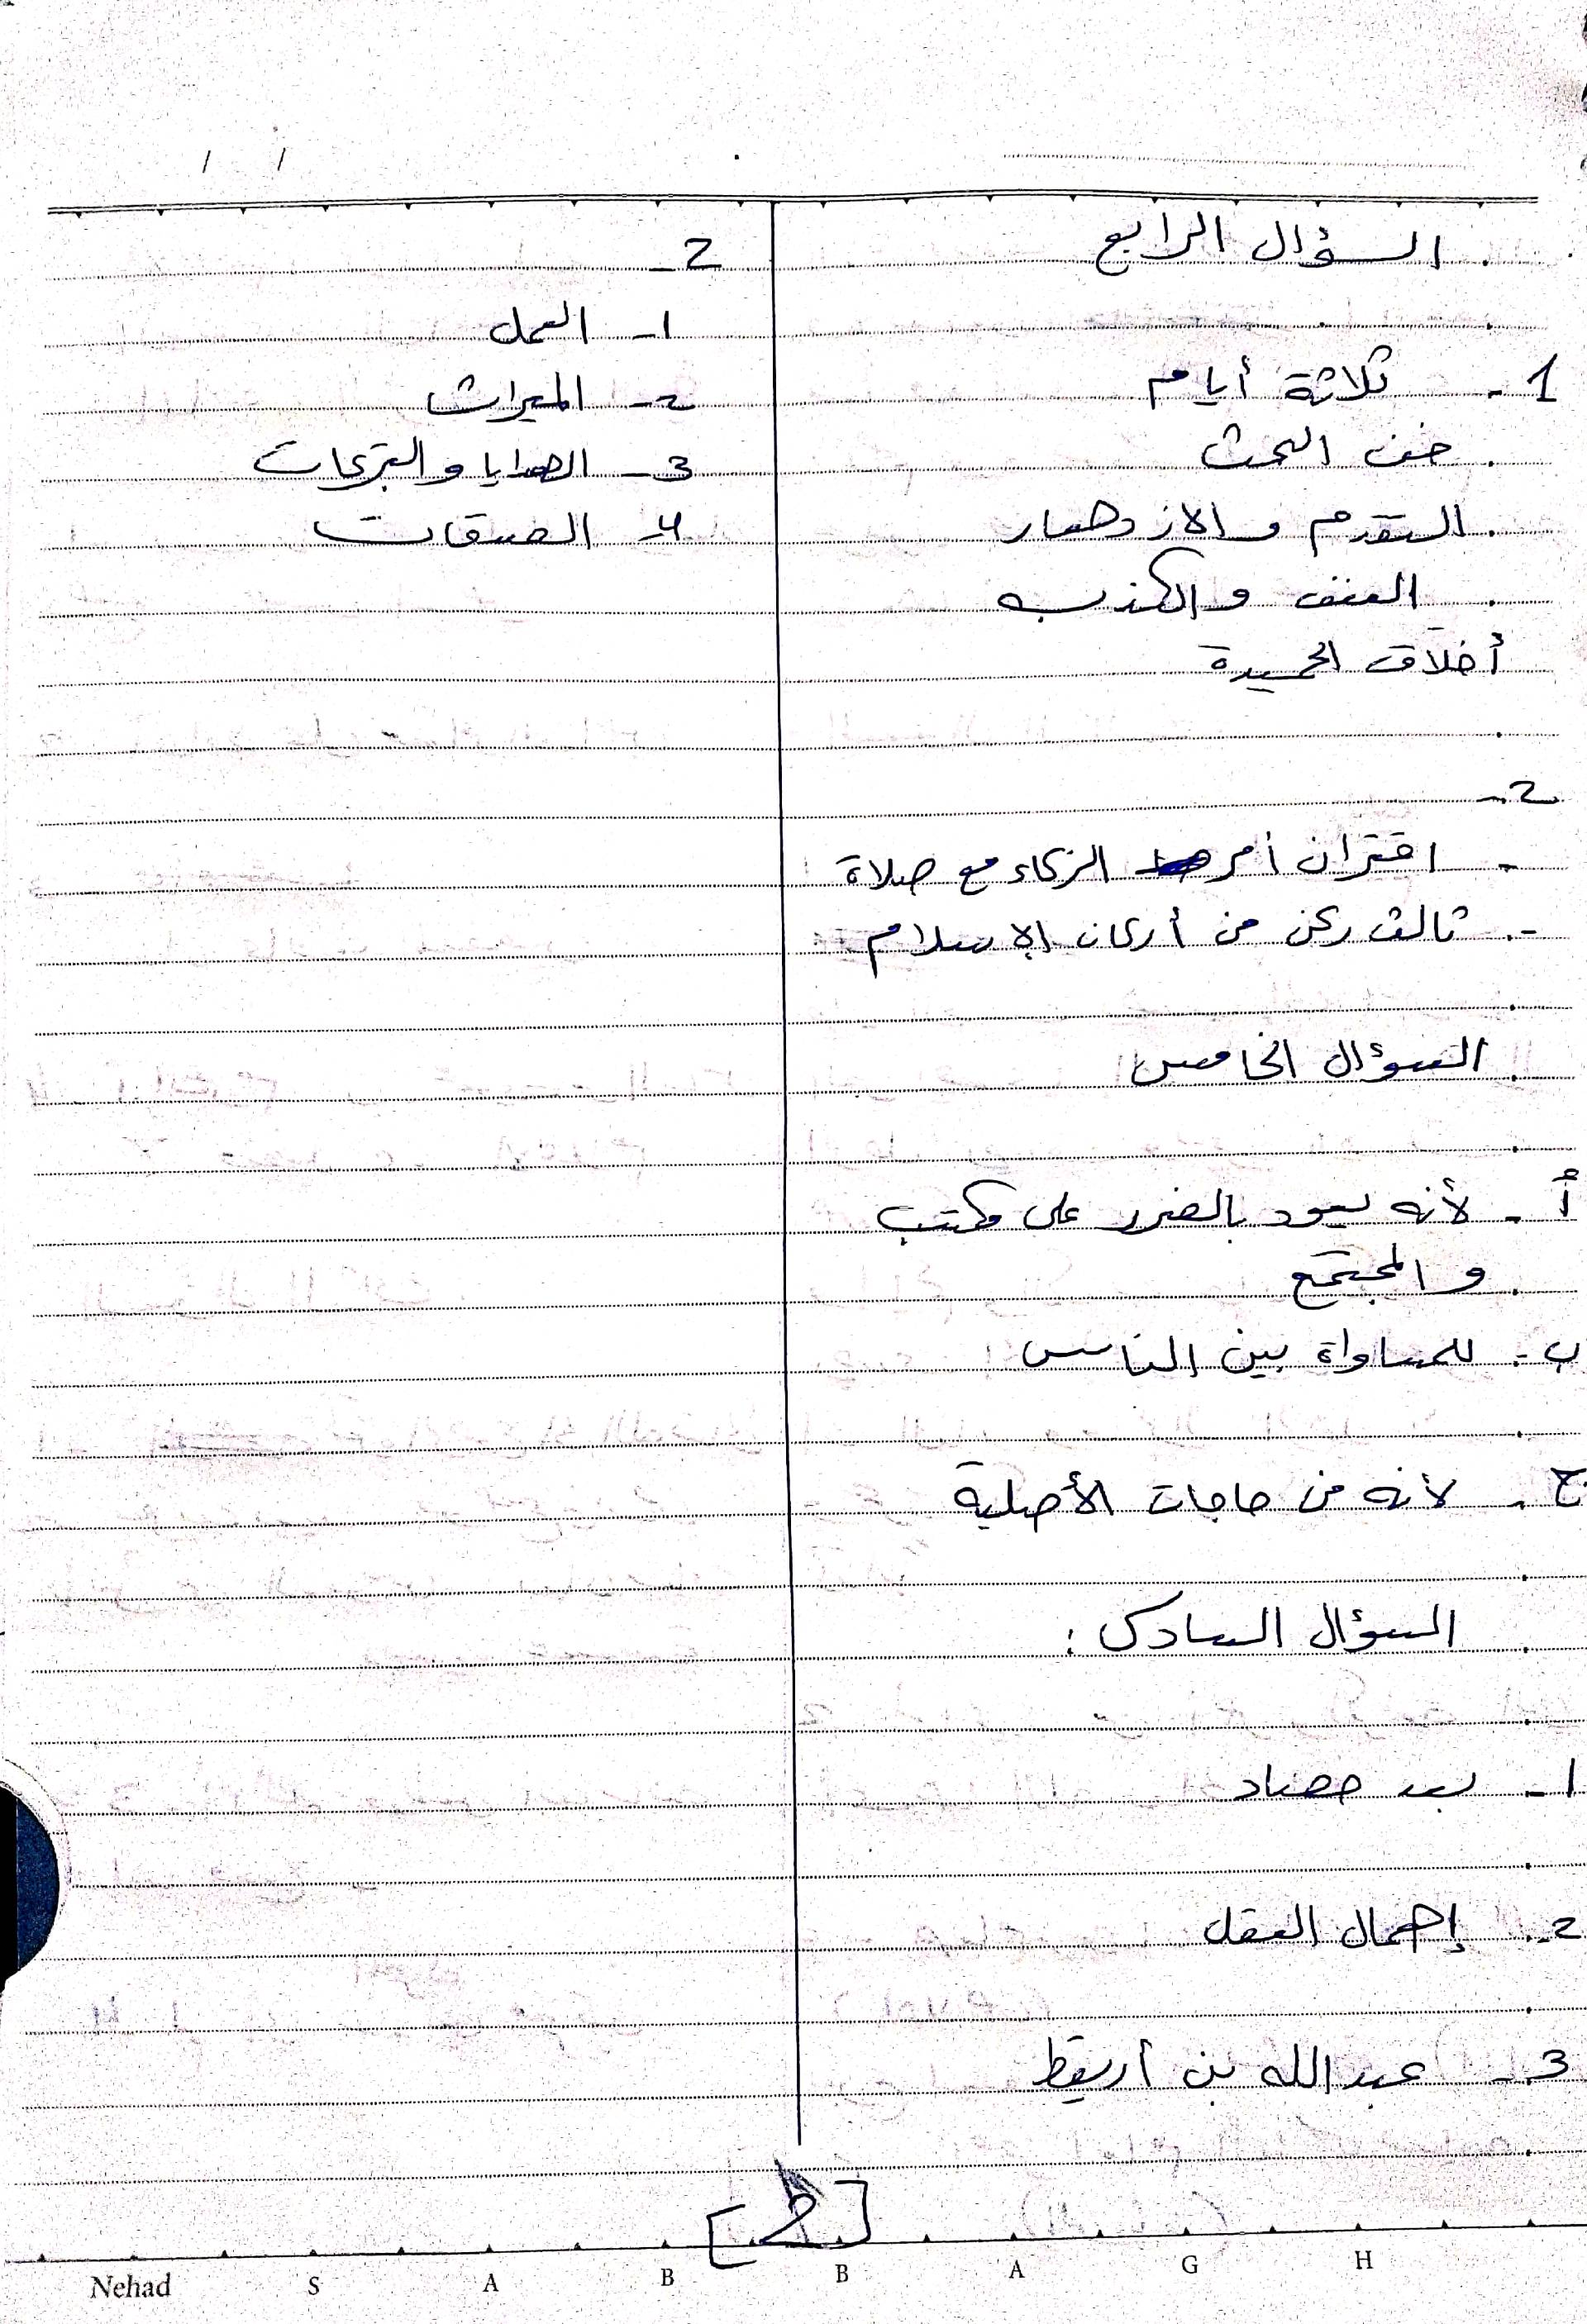 السؤال الرابع
1- ثلاثة أيام
التقدم والازدهار
العنف والكذب
أخلاق الحميدة
2-
- اقتران أمر الزكاء مع صلاة
- ثالث ركن من أركان الإسلام
السؤال الخامس
أ- لأنه يعود بالضرر على مكتب
والمجتمع
ب- للمساواة بين الناس
ج- لأنه من حاجات الأصلية
السؤال السادس:
1- بعد حصاد
2- إهمال العقل
3- عبدالله بن أريقط
2-
1- العمل
2- الميراث
3- الهدايا والتبرعات
4- الصدقات
[2]
Nehad S A B B A G H